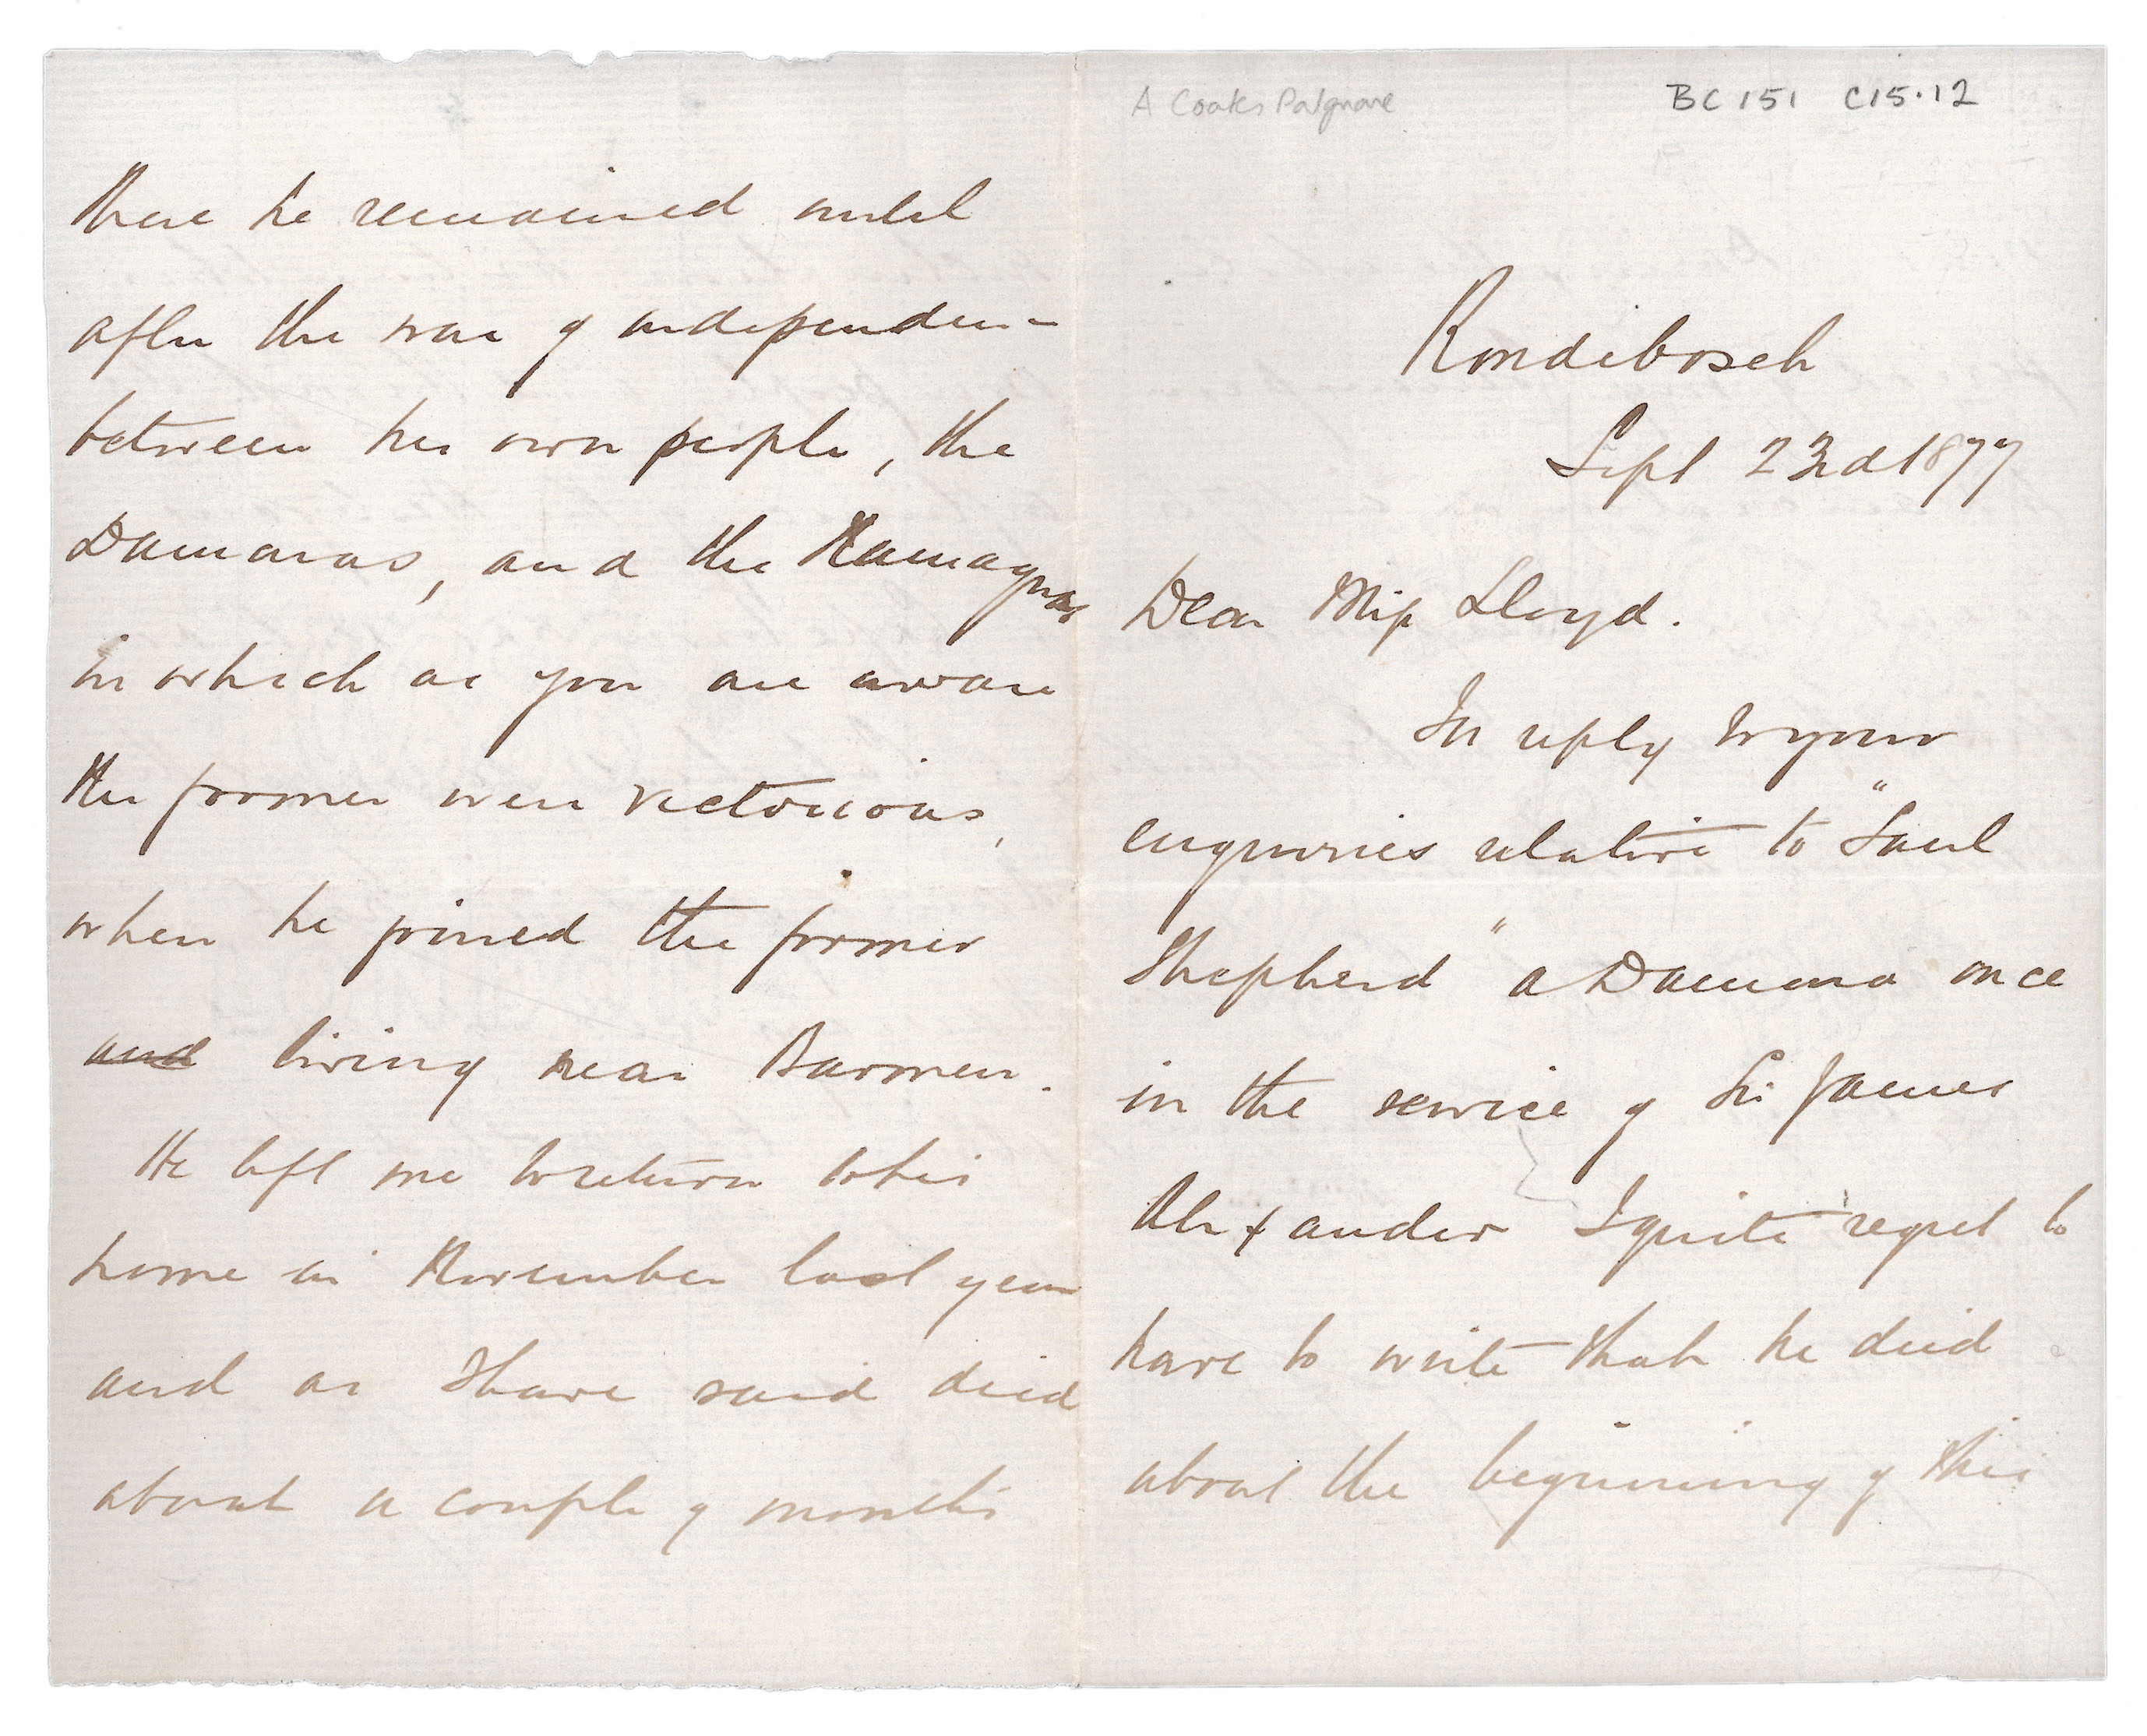 A Coates Palgrave BC 151 C15.12
Rondebosch
Sept 23rd 1877
Dear Miss Lloyd.
In reply to your
enquiries relative to "Saul
Shepherd" a Damara once
in the service of Sir James
Alexander I quite regret to
have to write that he died
about the beginning of this
there he remained until
after the war of independen-
between his own people, the
Damaras, and the Namaquas
in which as you are aware
the former were victorious,
when he joined the former
and living near Barmen.
He left me to return to his
home in November last year
and as I have said died
about a couple of months